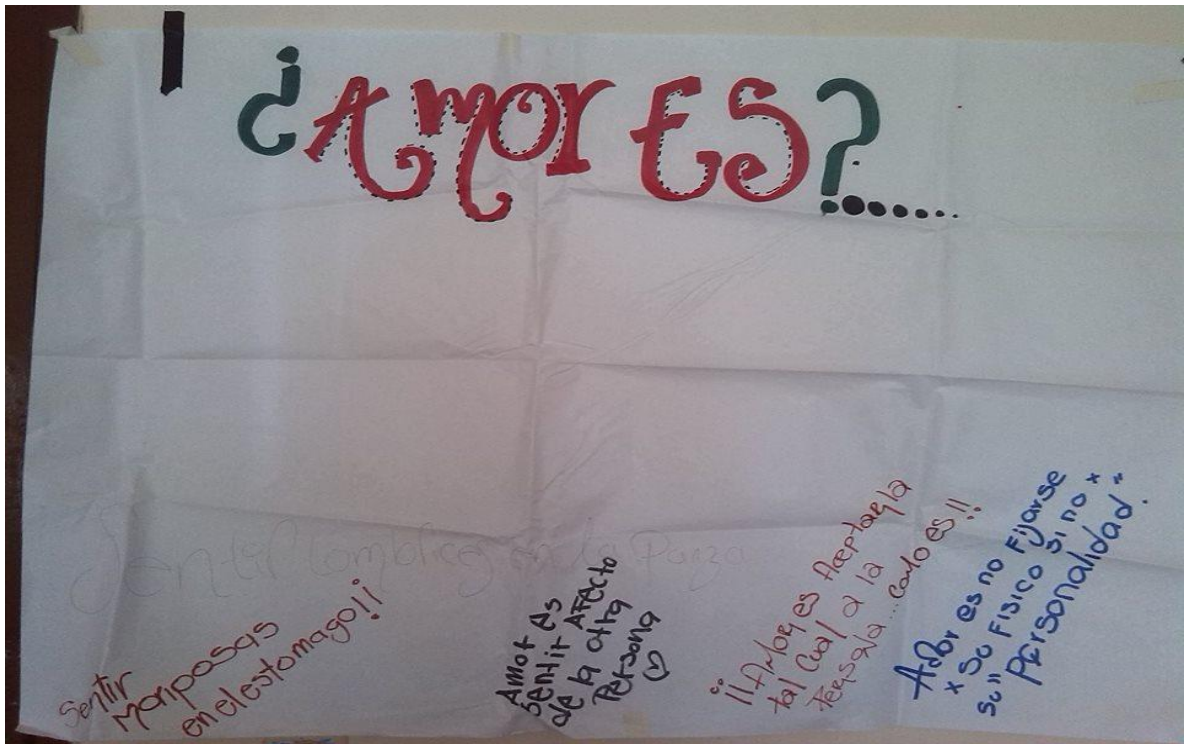 ¿Amor ES?......
Sentir lombrices en la Panza
Sentir
mariposas
en el estomago!!
Amor es
sentir AFecto
de la otra
Persona
¡¡Amor es Aceptarla
tal Cual a la
Persona... como es!!
Amor es no Fijarse
x su FISICO Si no x
su "Personalidad"